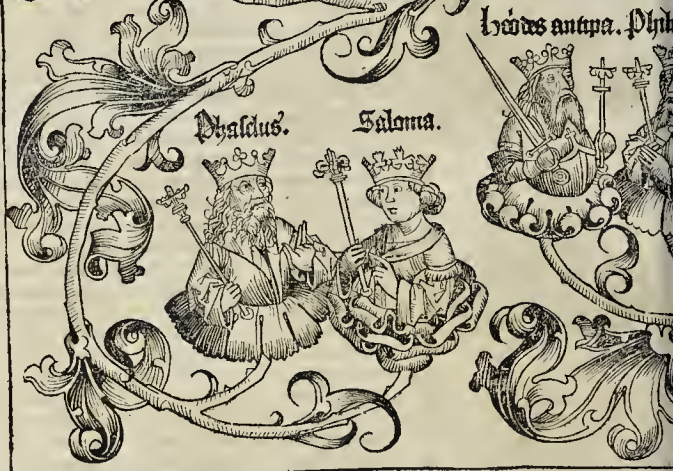 Herodes antipa. Phil
Phaselus. Saloma.